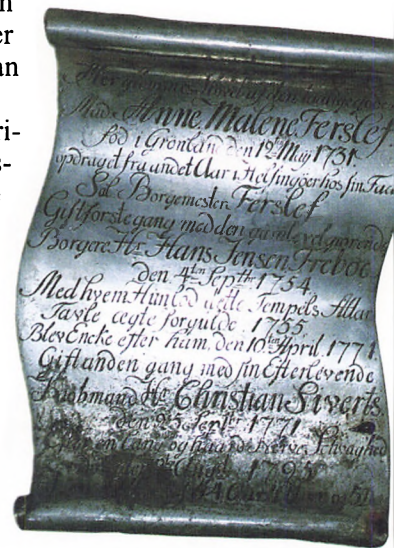 n
er
an
ri-
s-
e
Her giemmes Støvet af den
Mad: Anne Malene Ferslef.
fød i Grønland den 19de May 1731.
opdraget fra andet Aar i Helsingöer hos sin
Sal: Borgemester Ferslef
Gift første gang med den gamle velgiørende
Borgere Hr. Hans Jensen Freboe
den 4ten Septbr. 1754.
Med hvem Hun lod dette Tempels Altar
Tavle ægte forgulde 1755
Blev Encke efter ham den 10ten April 1771
Gift anden gang med sin Efterlevende
Kiøbmand Hr. Christian Siverts.
den 25 1771
Efter en Lang og haard Nerve Svaghed
1795